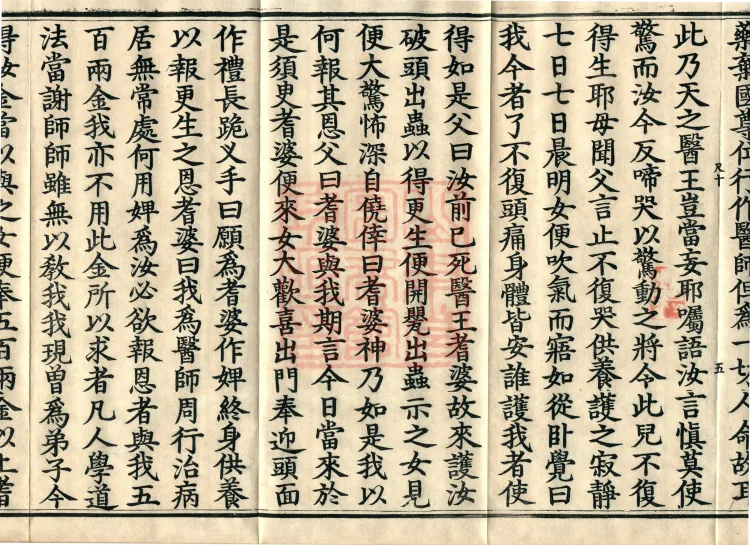 藥棄國尊位行作醫師但爲一切人命故耳
尺十
五
此乃天之醫王豈當妄耶囑語汝言慎莫使
驚而汝今反啼哭以驚動之將令此兒不復
得生耶母聞父言止不復哭供養護之寂靜
七日七日晨明女便吹氣而寤如從臥覺曰
我今者了不復頭痛身體皆安誰護我者使
得如是父曰汝前已死醫王耆婆故來護汝
破頭出蟲以得更生便開甖出蟲示之女見
便大驚怖深自僥倖曰耆婆神乃如是我以
何報其恩父曰耆婆與我期言今日當來於
是須臾耆婆便來女大歡喜出門奉迎頭面
作禮長跪叉手曰願爲耆婆作婢終身供養
以報更生之恩耆婆曰我爲醫師周行治病
居無常處何用婢爲汝必欲報恩者與我五
百兩金我亦不用此金所以求者凡人學道
法當謝師師雖無以教我我現曾爲弟子今
得汝金當以與之女便奉五百兩金以上耆